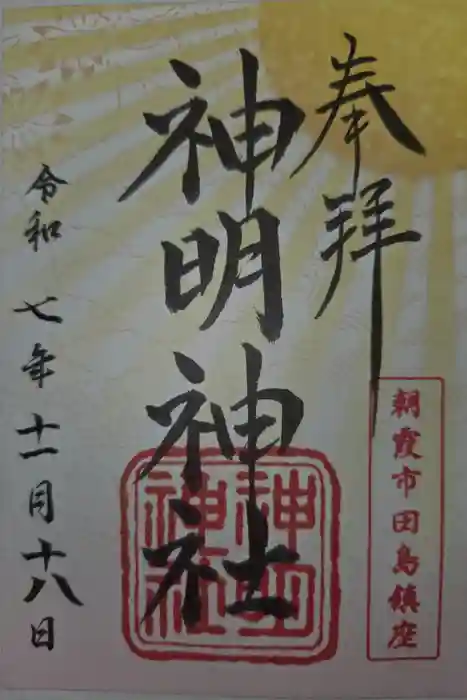 奉拝
朝霞市田島鎮座
神明神社
神明
神社
令和七年十一月十八日